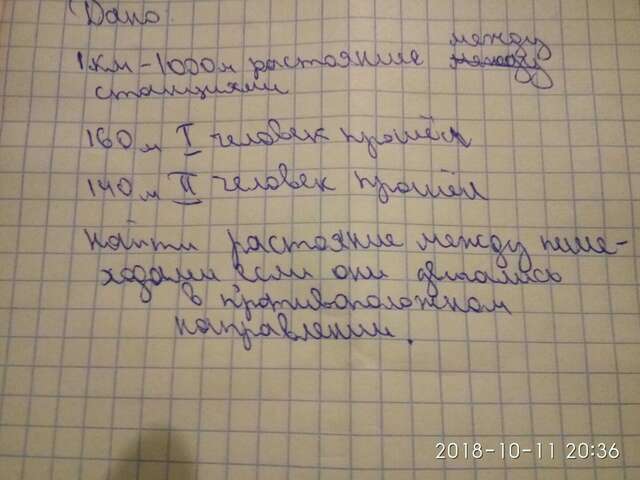 Дано
1 км - 1000 м растояние между между
станциями
160 м I человек прошёл
140 м II человек прошёл
найти растояние между пеше-
ходами если они двигались
в противоположном
направлении.
2018-10-11 20:36